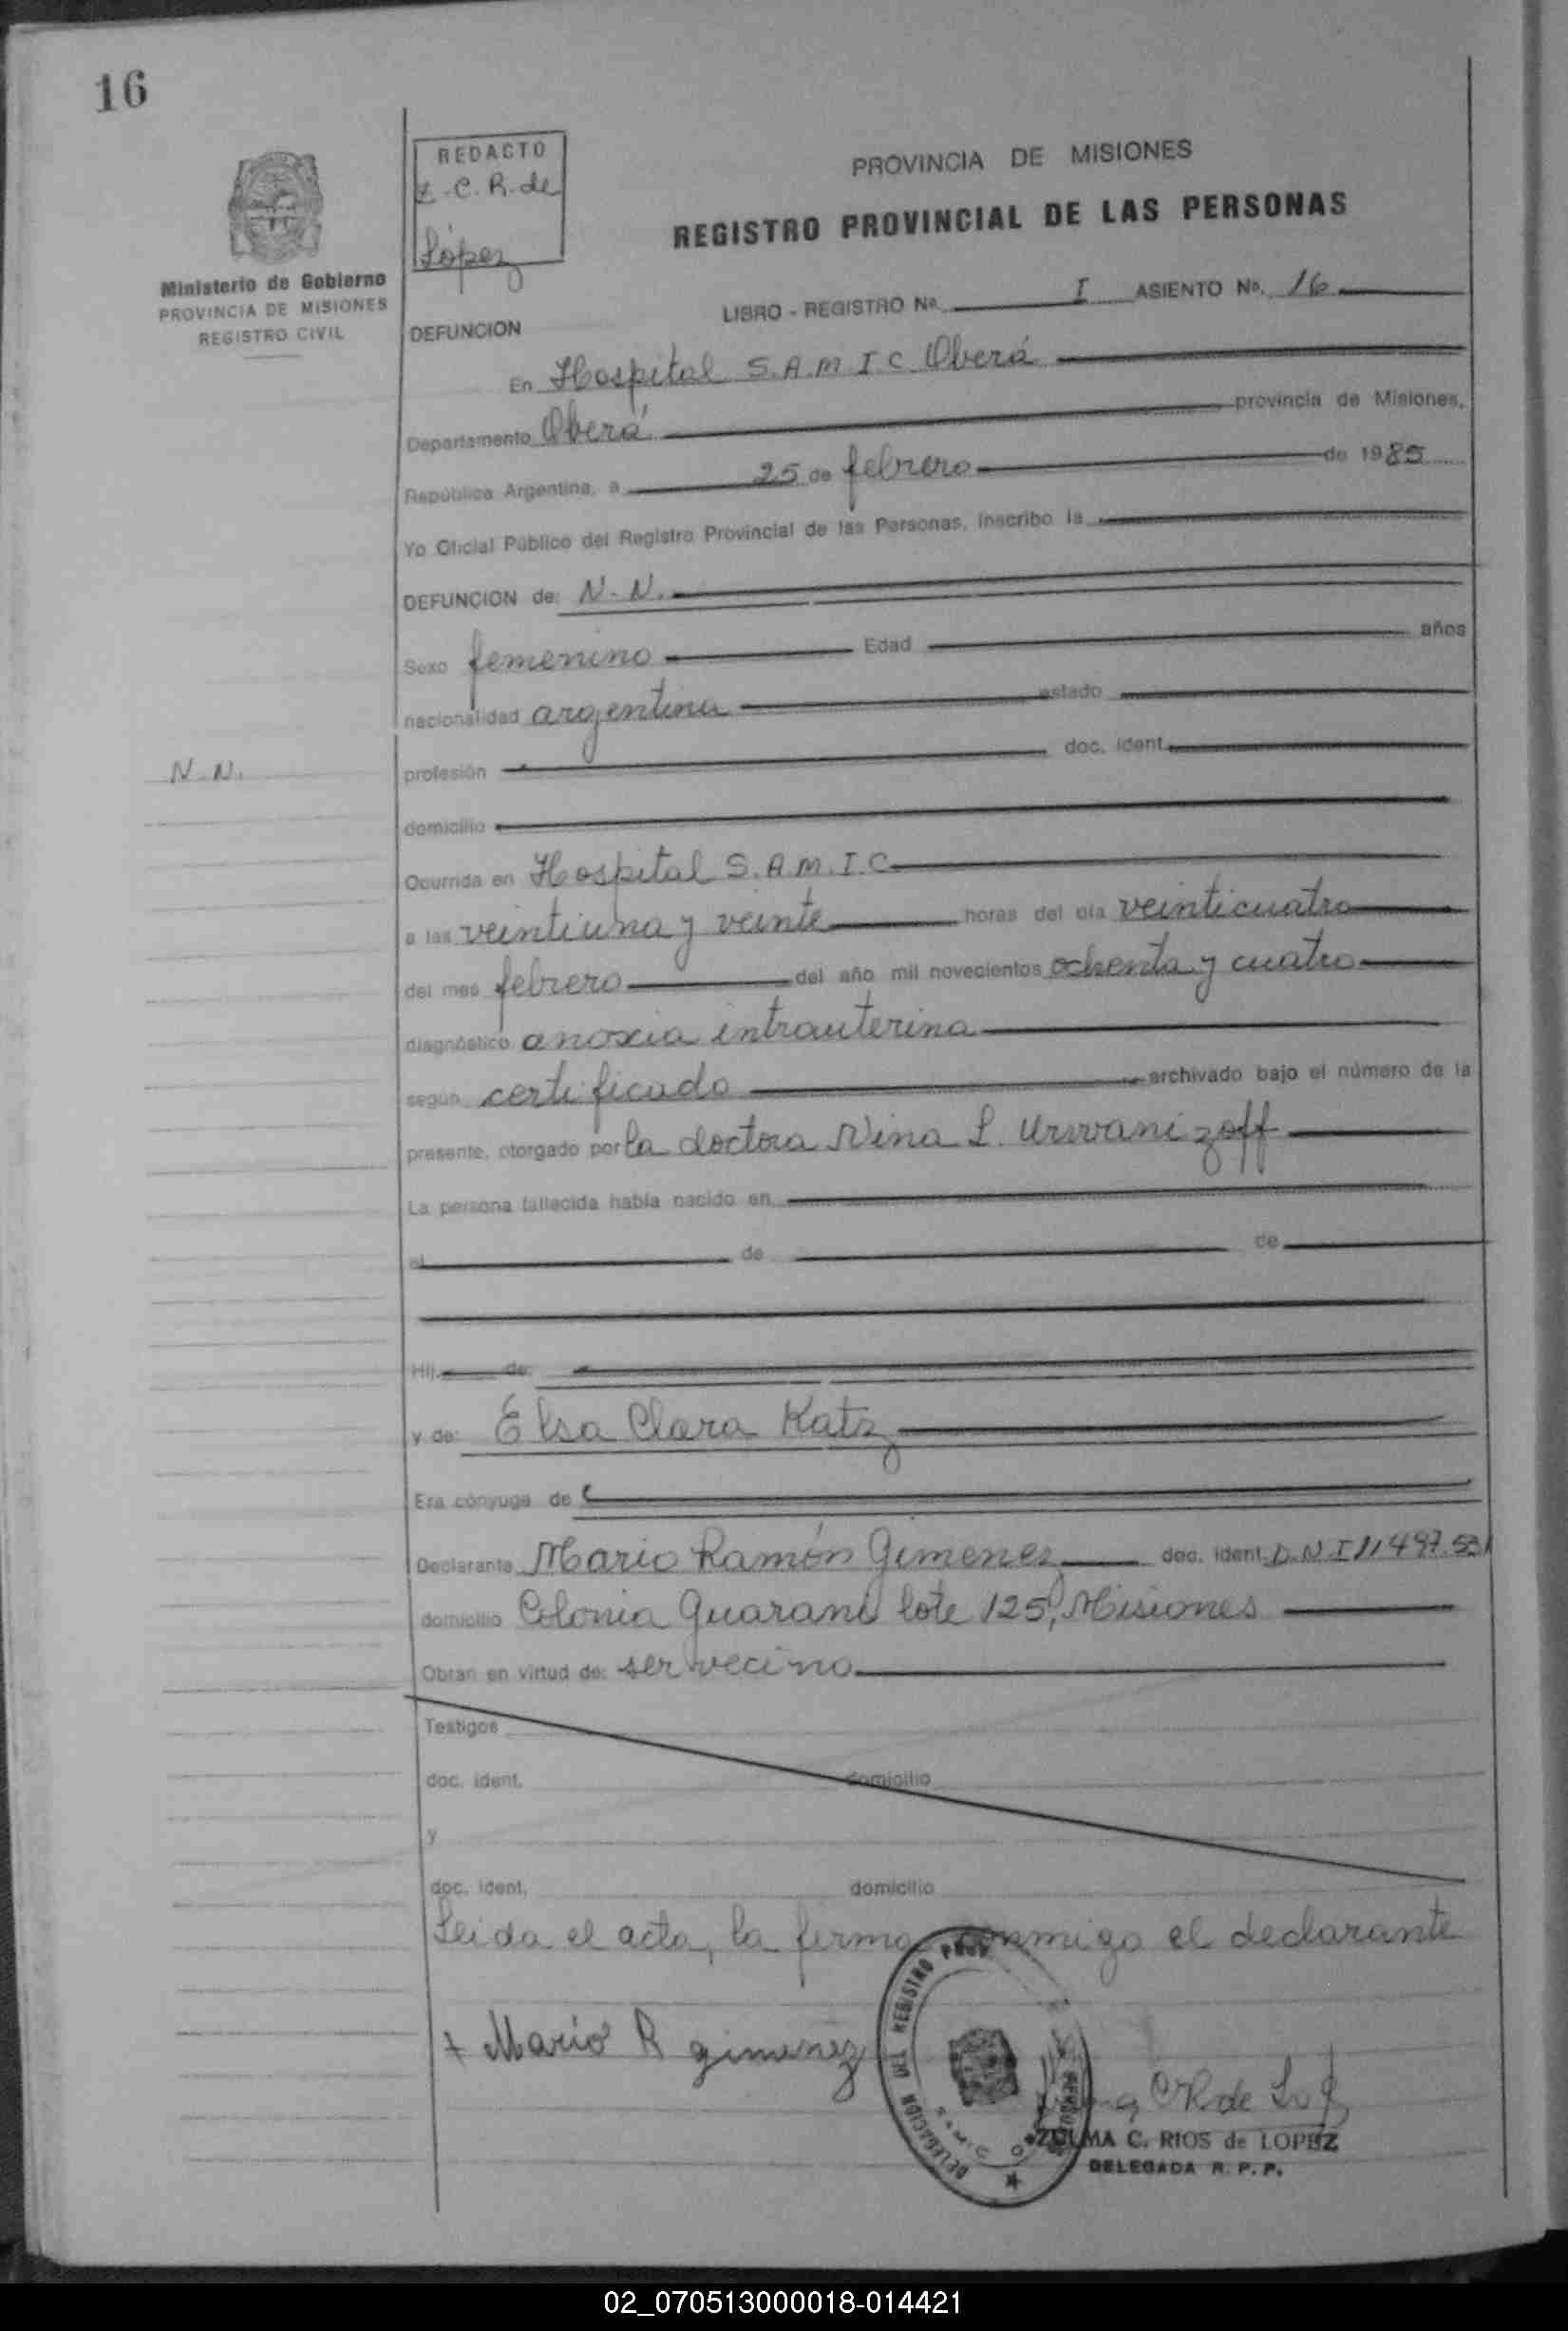 16
REDACTO
Z. C. R. de
López
Ministerio de Gobierno
PROVINCIA DE MISIONES
REGISTRO CIVIL
PROVINCIA DE MISIONES
REGISTRO PROVINCIAL DE LAS PERSONAS
LIBRO - REGISTRO Nº I ASIENTO Nº. 16
DEFUNCION
En Hospital S.A.M.I.C. Oberá
Departamento Oberá provincia de Misiones,
República Argentina, a 25 de febrero de 1985
Yo Oficial Público del Registro Provincial de las Personas, inscribo la
DEFUNCION de: N. N.
Sexo femenino Edad años
nacionalidad argentina estado
N. N.
profesión doc. ident.
domicilio
Ocurrida en Hospital S.A.M.I.C
a las veintiuna y veinte horas del día veinticuatro
del mes febrero del año mil novecientos ochenta y cuatro
diagnóstico anoxia intrauterina
según certificado archivado bajo el número de la
presente, otorgado por la doctora Nina L. Urwanizoff
La persona fallecida había nacido en
el de de
Hij de:
y de: Elsa Clara Katz
Era cónyuge de
Declarante Mario Ramón Gimenez doc. ident. D.N.I 11497.531
domicilio Colonia Guaraní lote 125, Misiones
Obran en virtud de: ser vecino
Testigos
doc. ident. domicilio
y
doc. ident. domicilio
Leida el acta, la firma conmigo el declarante
+ Mario R gimenez
DELEGACION DEL REGISTRO PROV
ZULMA C. RIOS de LOPEZ
DELEGADA R. P. P.
02_070513000018-014421